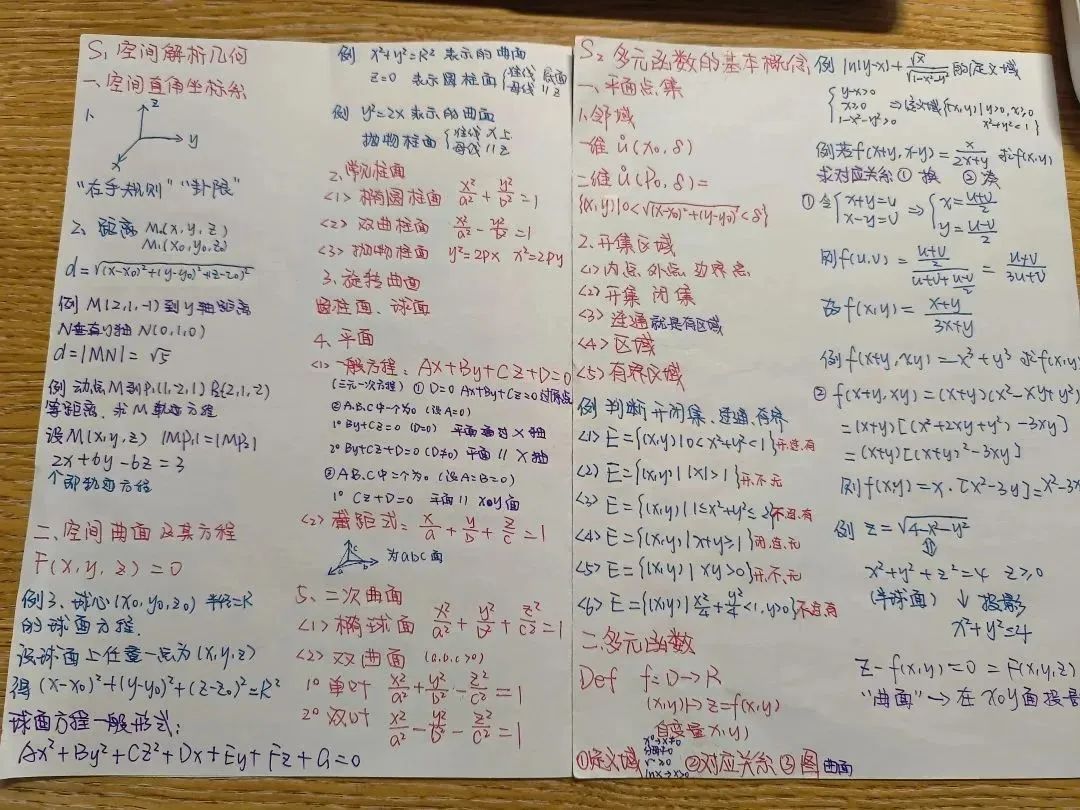 S₁ 空间解析几何
一、空间直角坐标系
1、
z
y
x
"右手规则" "卦限"
2、距离 M₁(x, y, z)
M₁(x₀, y₀, z₀)
d=√(x-x₀)²+(y-y₀)²+(z-z₀)²
例 M(2,1,-1)到y轴距离
N垂直y轴 N(0,1,0)
d=|MN|=√5
例 动点M到P₁(1,2,1) P₂(2,1,2)
等距离，求M轨迹方程
设M(x,y,z) |MP₁|=|MP₂|
2x+6y-6z=3
个即轨迹方程
二、空间曲面及其方程
F(x, y, z)=0
例3、球心(x₀,y₀,z₀) 半径=R
的球面方程.
设球面上任意一点为(x,y,z)
得 (x-x₀)²+(y-y₀)²+(z-z₀)²=R²
球面方程一般形式:
Ax²+By²+Cz²+Dx+Ey+Fz+G=0
例 x²+y²=R² 表示的曲面
z=0 表示圆柱面 {准线 底面
母线 // z
例 y²=2x 表示的曲面
抛物柱面 {准线 x上
母线 // z
2、常见柱面
<1> 椭圆柱面 x²/a² + y²/b² =1
<2> 双曲柱面 x²/a² - y²/b² =1
<3> 抛物柱面 y²=2px x²=2py
3、旋转曲面
圆柱面、球面
4、平面
<1> 一般方程: Ax+By+Cz+D=0
(三元一次方程) ① D=0 Ax+By+Cz=0 过原点
② A.B.C中一个为0 (设A=0)
1° By+Cz=0 (D=0) 平面通过X轴
2° By+Cz+D=0 (D≠0) 平面 // X轴
③ A.B.C中二个为0 (设A=B=0)
1° Cz+D=0 平面 // xoy面
<2> 截距式: x/a + y/b + z/c =1
为abc面
5、二次曲面
<1> 椭球面 x²/a² + y²/b² + z²/c² =1
<2> 双曲面 (a.b.c>0)
1° 单叶 x²/a² + y²/b² - z²/c² =1
2° 双叶 x²/a² - y²/b² - z²/c² =1
S₂ 多元函数的基本概念
一、平面点集
1、邻域
一维 ů(x₀, δ)
二维 ů(P₀, δ)=
{(x,y)|0<√(x-x₀)²+(y-y₀)²<δ}
2、开集区域
<1> 内点 外点 边界点
<2> 开集 闭集
<3> 连通 就是有区域
<4> 区域
<5> 有界区域
例 判断开闭集、连通、有界
<1> E={(x,y)|0<x²+y²<1}开.连.有
<2> E={(x,y)||x|>1}开.不.无
<3> E={(x,y)|1≤x²+y²≤2}不.连.有
<4> E={(x,y)|x+y≥1}闭.连.无
<5> E={(x,y)|xy>0}开.不.无
<6> E={(x,y)|x²/2+y²/4<1,y>0}不.连.有
二、多元函数
Def f: D→R
(x,y)↦z=f(x,y)
自变量x,y
①定义域
x⁰→x≠0
分母≠0
√→≥0
lnx→x>0
②对应关系 ③图 曲面
例 ln(y-x)+√x/√1-x²-y² 的定义域
{y-x>0
x≥0
1-x²-y²>0
⇒ 定义域{(x,y)|y>0,x≥0
x²+y²<1}
例若f(x+y, x-y)=x/2x+y 求f(x,y)
求对应关系 ① 换 ② 凑
① 令{x+y=u
x-y=v
⇒{x=u+v/2
y=u-v/2
则f(u,v)=(u+v/2)/(u+v+u-v/2)=u+v/3u+v
故f(x,y)=x+y/3x+y
例 f(x+y, xy)=x³+y³ 求f(x,y)
② f(x+y, xy)=(x+y)(x²-xy+y²)
=(x+y)[(x²+2xy+y²)-3xy]
=(x+y)[(x+y)²-3xy]
则f(x,y)=x·[x²-3y]=x³-3x
例 z=√4-x²-y²
⇕
x²+y²+z²=4 z≥0
(半球面) ↓ 投影
x²+y²≤4
z-f(x,y)=0=F(x,y,z)
"曲面"→在xoy面投